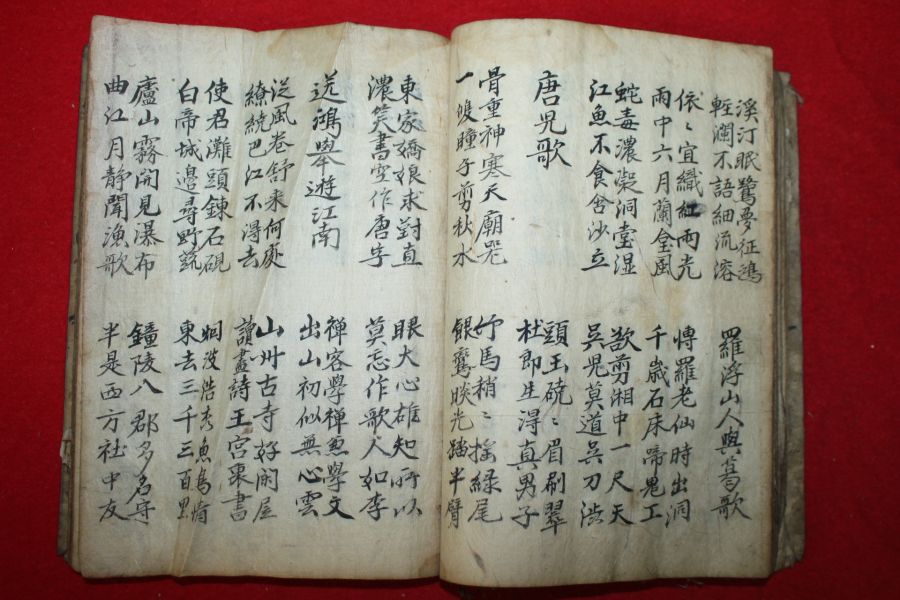 溪汀眠鷺夢征鴻
輕瀾不語細流溶
羅浮山人與葛歌
依〻宜織紅雨光
雨中六月蘭金風
博羅老仙時出洞
千歲石床啼鬼工
蛇毒濃凝洞堂湿
江魚不食含沙立
欲剪湘中一尺天
吳児莫道吳刀澁
唐児歌
頭玉磽〻眉刷翠
杜郎生得真男子
骨重神寒天廟器
一雙瞳子剪秋水
竹馬梢〻搖綠尾
銀鸞睒光踏半臂
東家嬌娘求對直
濃笑書空作唐字
眼大心雄知所以
莫忘作歌人如李
送鴻舉遊江南
禪客學禪兼學文
出山初似無心雲
從風卷舒来何處
繚繞巴江不得去
山州古寺好閑居
讀盡詩王宮裏書
使君灘頭鍊石硯
白帝城邊尋野蔬
烟波浩杳魚鳥情
東去三千三百里
廬山霧開見瀑布
曲江月静聞漁歌
鐘陵八郡多名守
半是西方社中友